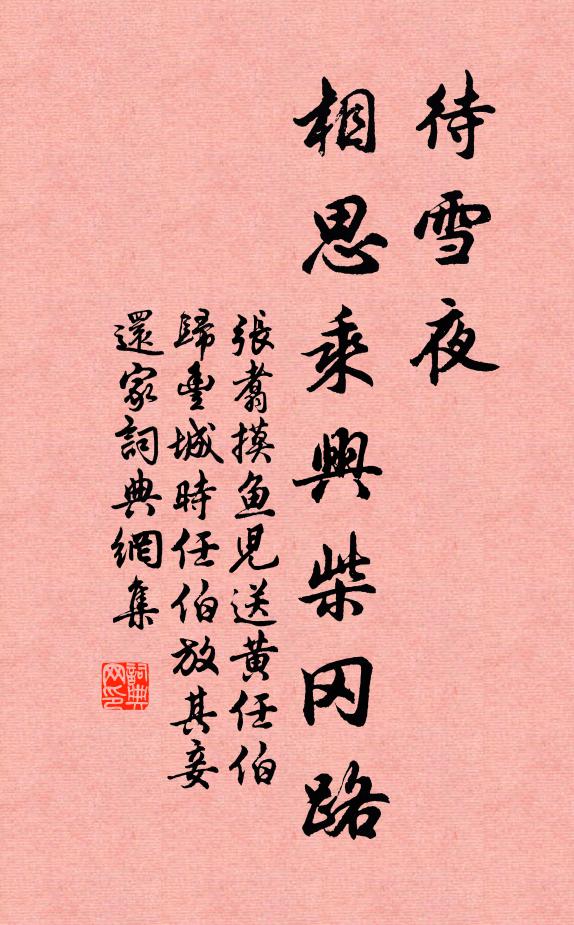 待雪夜
相思乘興柴冈路
張翥摸鱼兒送黄任伯
歸豐城時任伯放其妾
還家詞典網集
詞典
网印